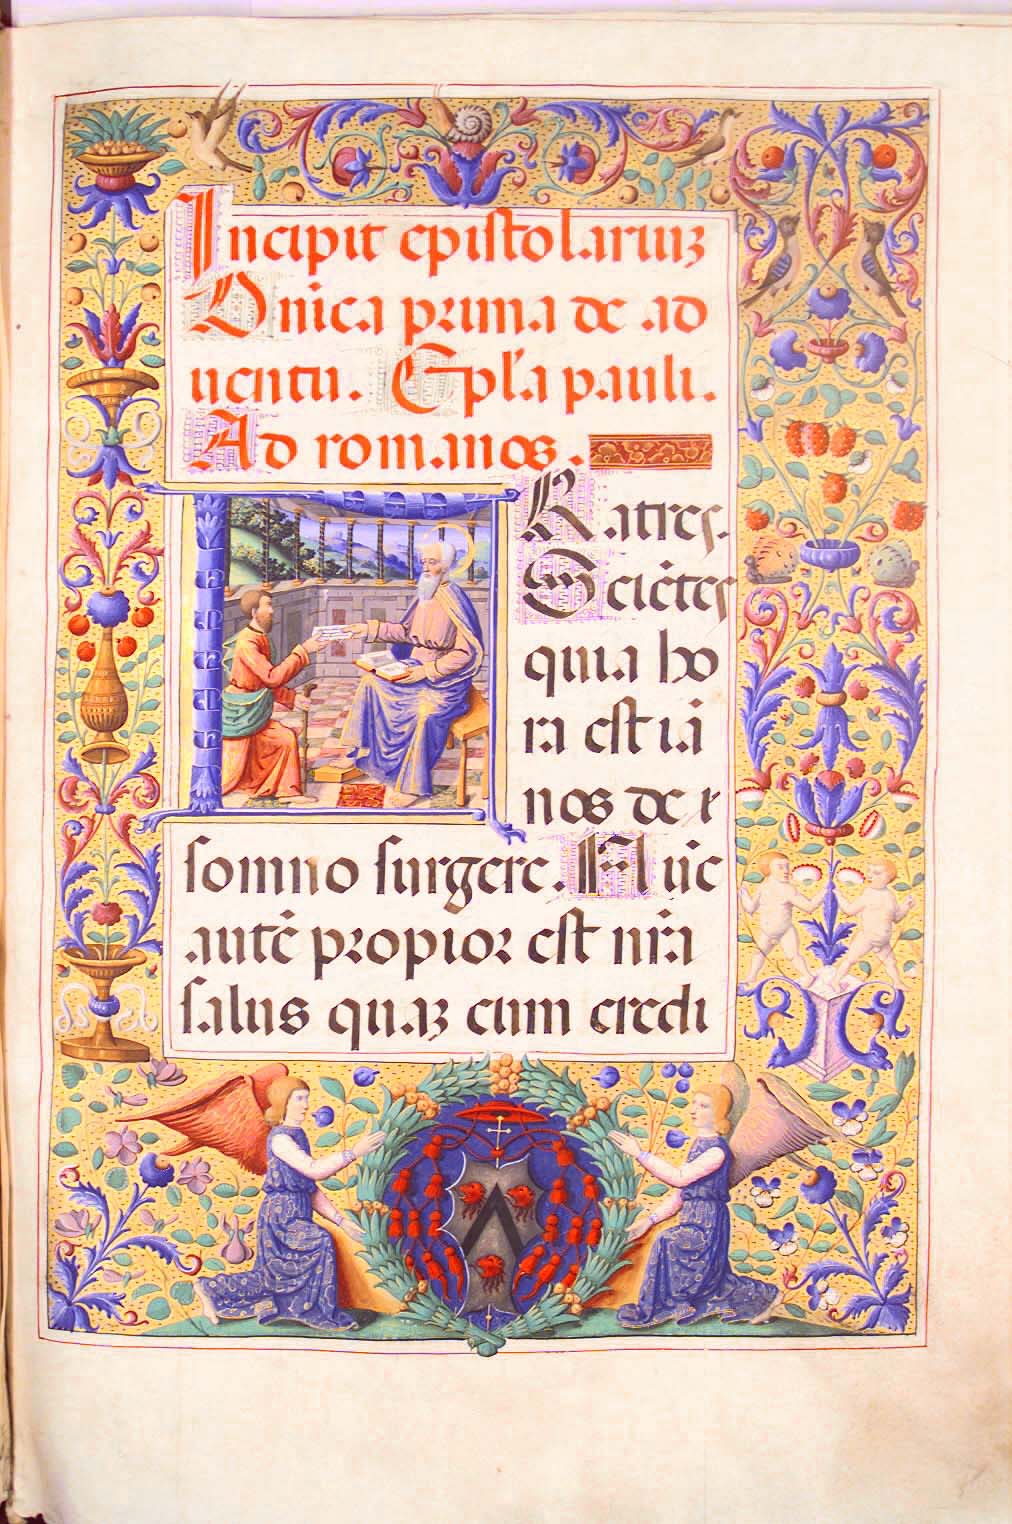 Incipit epistolariuʒ
Dn̄ica prima de ad
uentu. Epl'a pauli.
Ad romanos.
Ratres.
Sciētes
quia ho
ra est iā
nos de
somno surgere. Nūc
autē propior est nr̄a
salus quaʒ cum credi